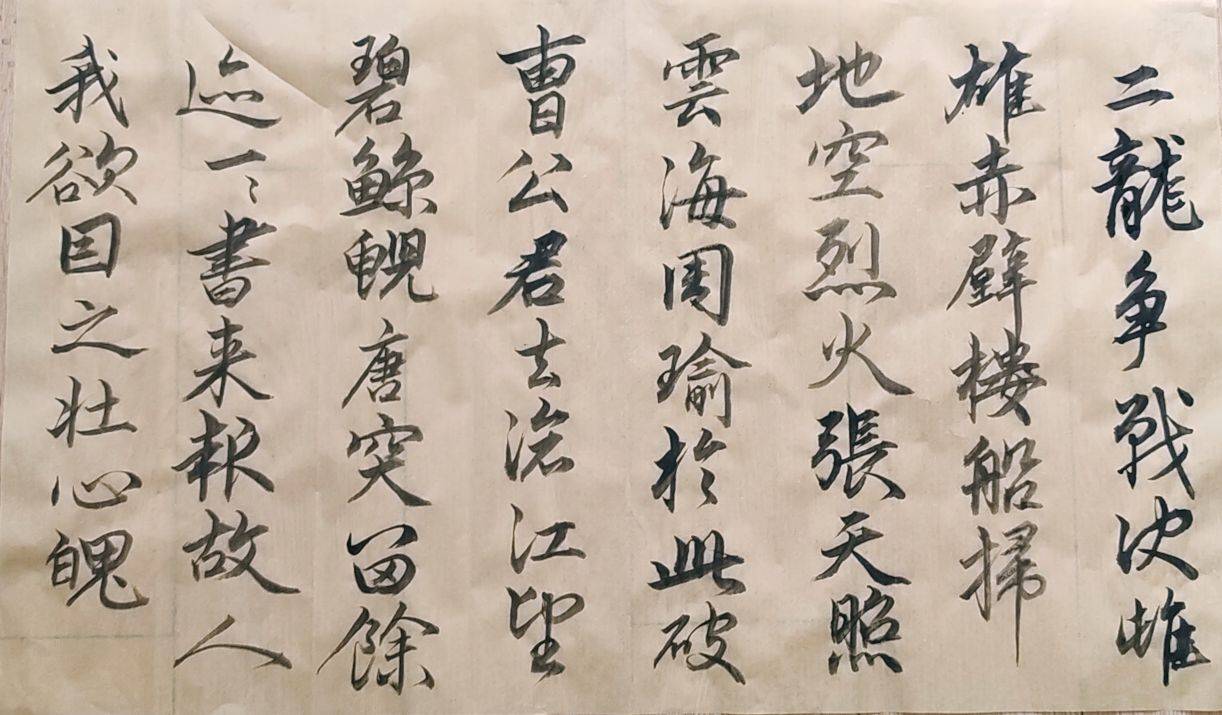 二龍争戰决雌
雄赤壁樓船掃
地空烈火張天照
雲海周瑜於此破
曹公君去滄江望
碧鯨鯢唐突留餘
迹一々書来報故人
我欲因之壯心魄